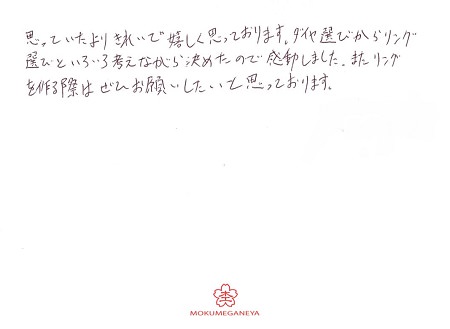 思っていたよりきれいで嬉しく思っております。ダイヤ選びからリング
選びといろいろ考えながら決めたので感動しました。またリング
を作る際はぜひお願いしたいと思っております。
MOKUMEGANEYA